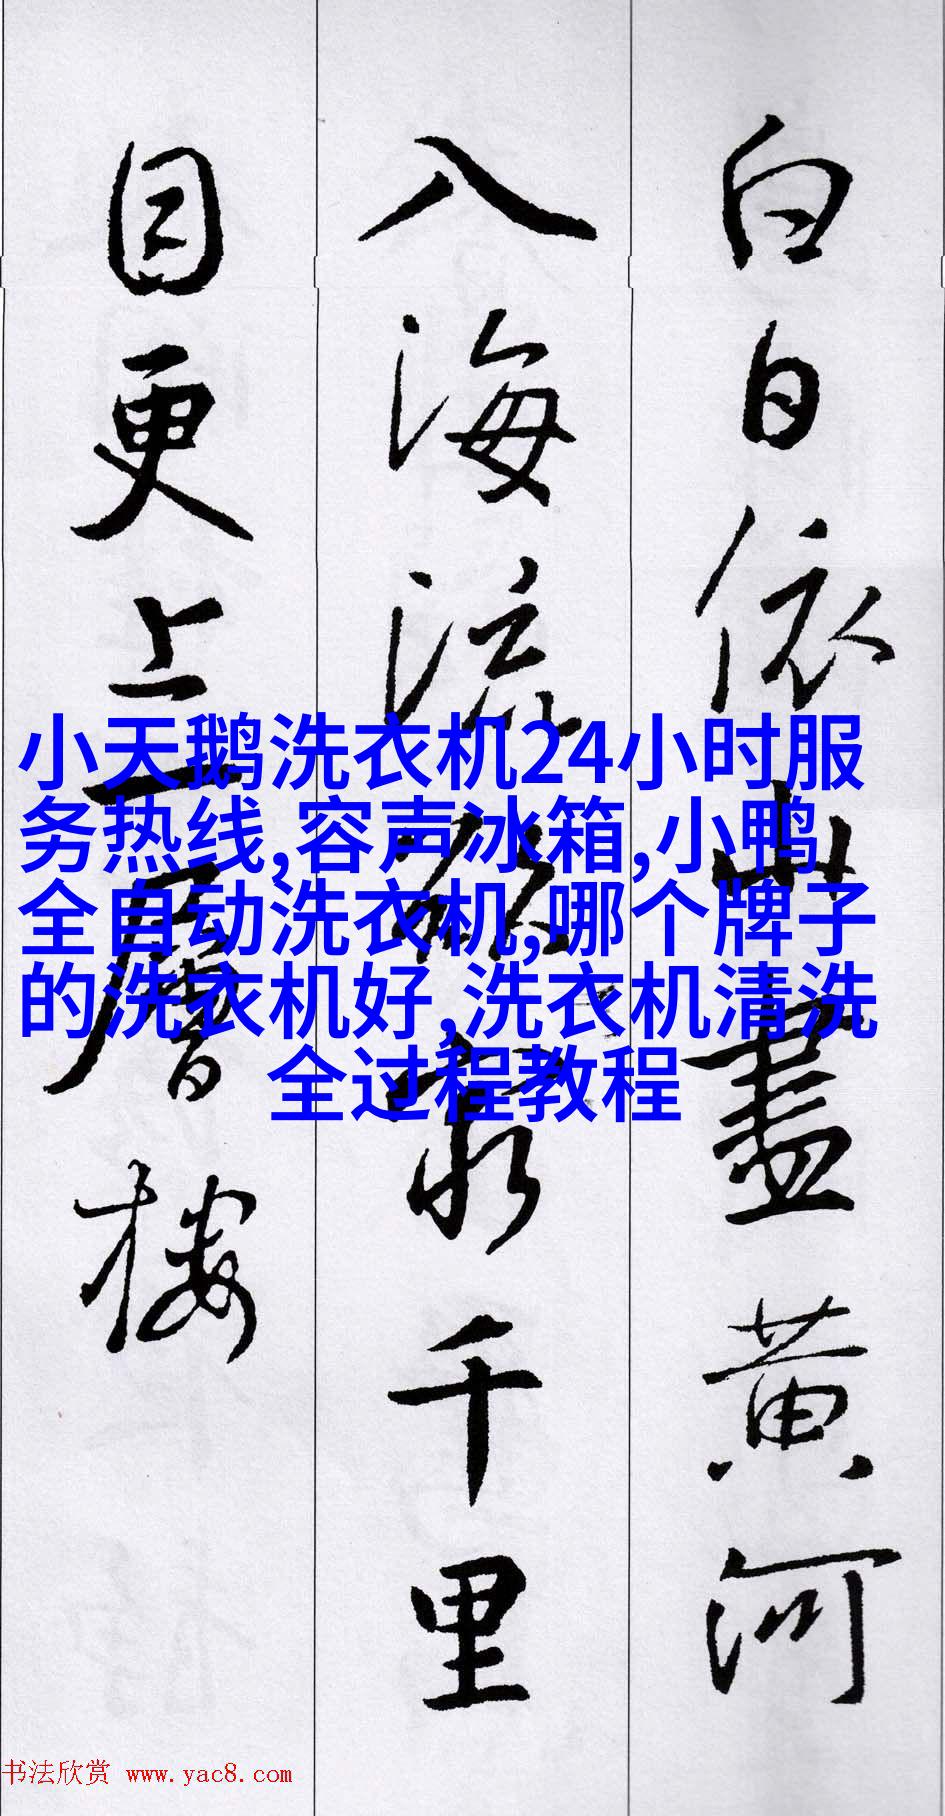 白日依山盡黃河
入海流欲窮千里
目更上一層樓
小天鹅洗衣机24小时服
务热线,容声冰箱,小鸭
全自动洗衣机,哪个牌子
的洗衣机好,洗衣机清洗
全过程教程
书法欣赏 www.yac8.com